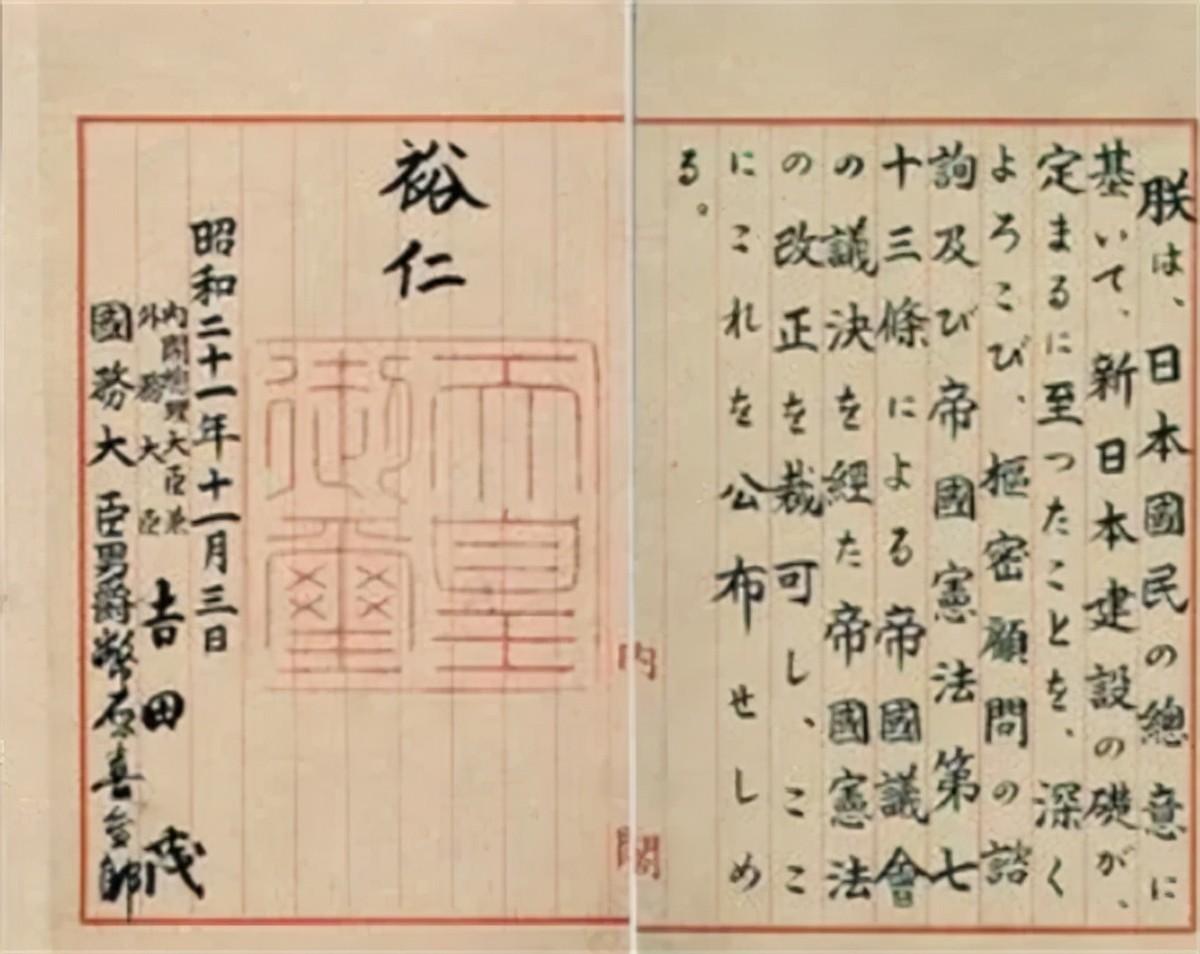 朕は、日本國民の總意に
基いて、新日本建設の礎が、
定まるに至つたことを、深く
よろこび、樞密顧問の諮
詢及び帝國憲法第七
十三條による帝國議會
の議決を經た帝國憲法
の改正を裁可し、ここ
にこれを公布せしめ
る。
裕仁
天皇
御璽
昭和二十一年十一月三日
内閣總理大臣兼
外務大臣 吉田茂
國務大臣男爵幣原喜重郎
内閣